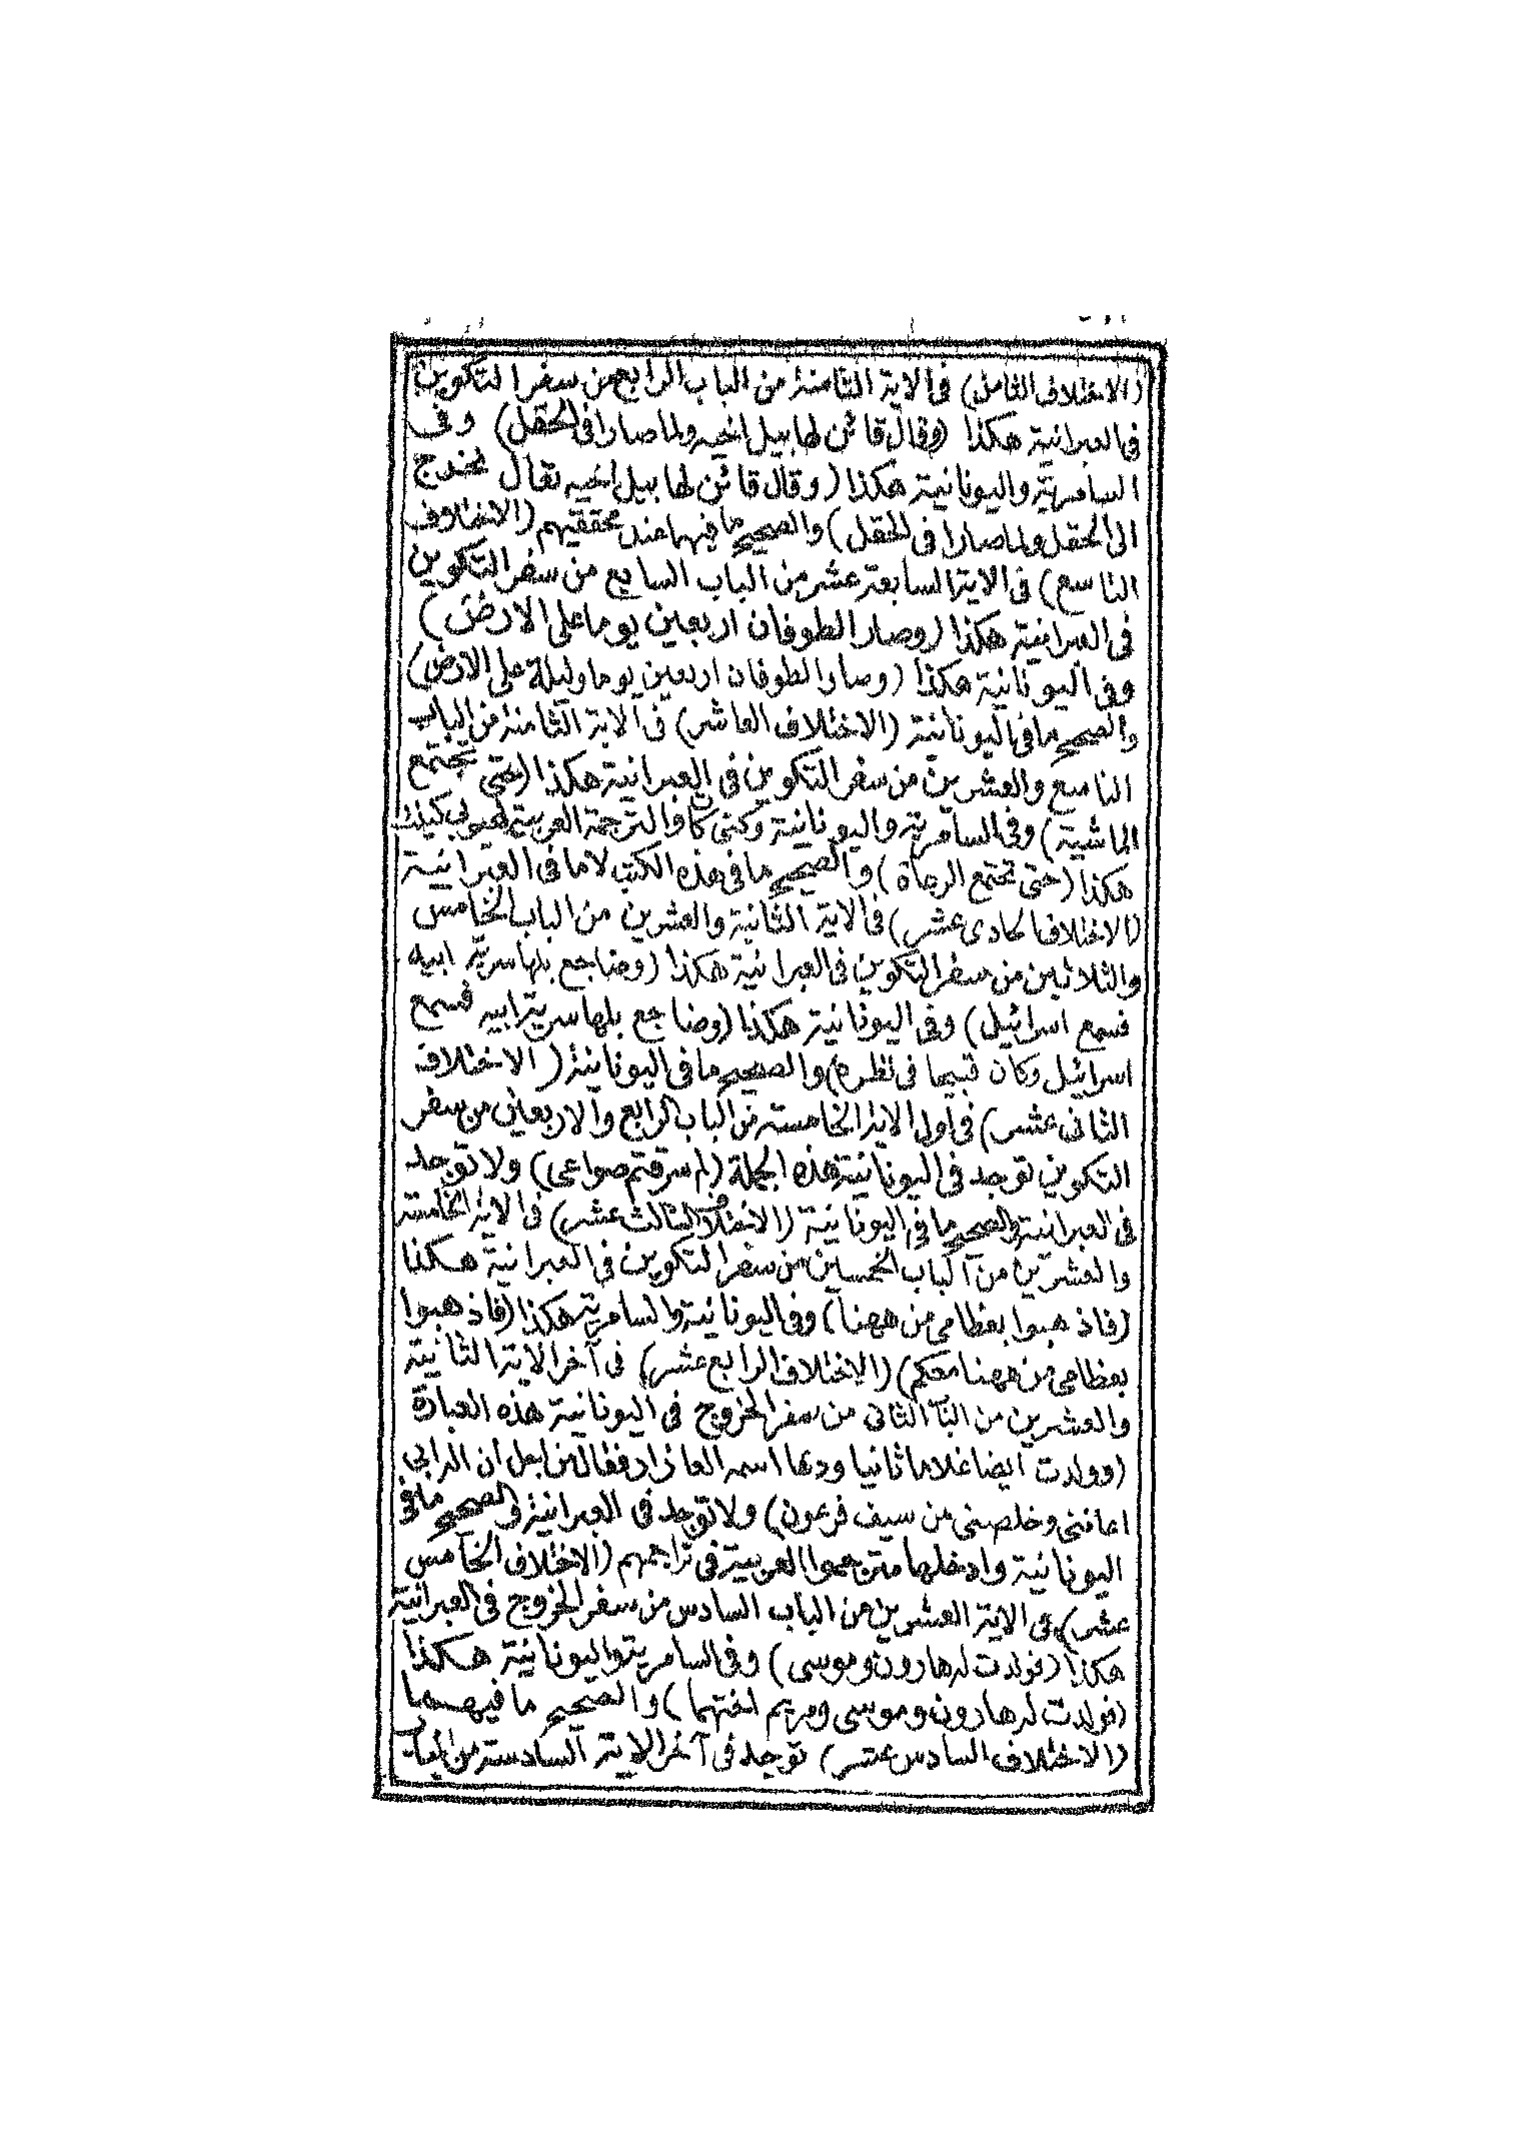 (الاختلاف الثامن) فى الاية الثامنة من الباب الرابع من سفر التكوين
فى العبرانية هكذا (وقال قائن لهابيل اخيه ولما صارا فى الحقل) وفى
السامرية واليونانية هكذا (وقال قائن لهابيل اخيه تعال نخرج
الى الحقل ولما صارا فى الحقل) والصحيح ما فيهما عند محققيهم (الاختلاف
التاسع) فى الاية السابعة عشر من الباب السابع من سفر التكوين
فى العبرانية هكذا (وصار الطوفان اربعين يوما على الارض)
وفى اليونانية هكذا (وصار الطوفان اربعين يوما وليلة على الارض)
والصحيح ما فى اليونانية (الاختلاف العاشر) فى الاية الثامنة من الباب
التاسع والعشرين من سفر التكوين فى العبرانية هكذا (حتى تجتمع
الماشية) وفى السامرية واليونانية وكنى كات والترجمة العربية لهيوبى كينت
هكذا (حتى تجتمع الرعاة) والصحيح ما فى هذه الكتب لا ما فى العبرانية
(الاختلاف الحادى عشر) فى الاية الثانية والعشرين من الباب الخامس
والثلاثين من سفر التكوين فى العبرانية هكذا (وضاجع بلها سرية ابيه
فسمع اسرائيل) وفى اليونانية هكذا (وضاجع بلها سرية ابيه فسمع
اسرائيل وكان قبيحا فى نظره) والصحيح ما فى اليونانية (الاختلاف
الثانى عشر) فى اول الاية الخامسة من الباب الرابع والاربعين من سفر
التكوين توجد فى اليونانية هذه الجملة (لم سرقتم صواعى) ولا توجد
فى العبرانية والصحيح ما فى اليونانية (الاختلاف الثالث عشر) فى الاية الخامسة
والعشرين من الباب الخمسين من سفر التكوين فى العبرانية هكذا
(فاذهبوا بعظامى من ههنا) وفى اليونانية والسامرية هكذا (فاذهبوا
بعظامى من ههنا معكم) (الاختلاف الرابع عشر) فى آخر الاية الثانية
والعشرين من الباب الثانى من سفر الخروج فى اليونانية هذه العبارة
(وولدت ايضا غلاما ثانيا ودعا اسمه العازار فقال من اجل ان اله ابى
اعاننى وخلصنى من سيف فرعون) ولا توجد فى العبرانية والصحيح ما فى
اليونانية وادخلها مترجموا العربية فى تراجمهم (الاختلاف الخامس
عشر) فى الاية العشرين من الباب السادس من سفر الخروج فى العبرانية
هكذا (فولدت له هارون وموسى) وفى السامرية واليونانية هكذا
(فولدت له هارون وموسى ومريم اختهما) والصحيح ما فيهما
(الاختلاف السادس عشر) توجد فى آخر الاية السادسة من الباب